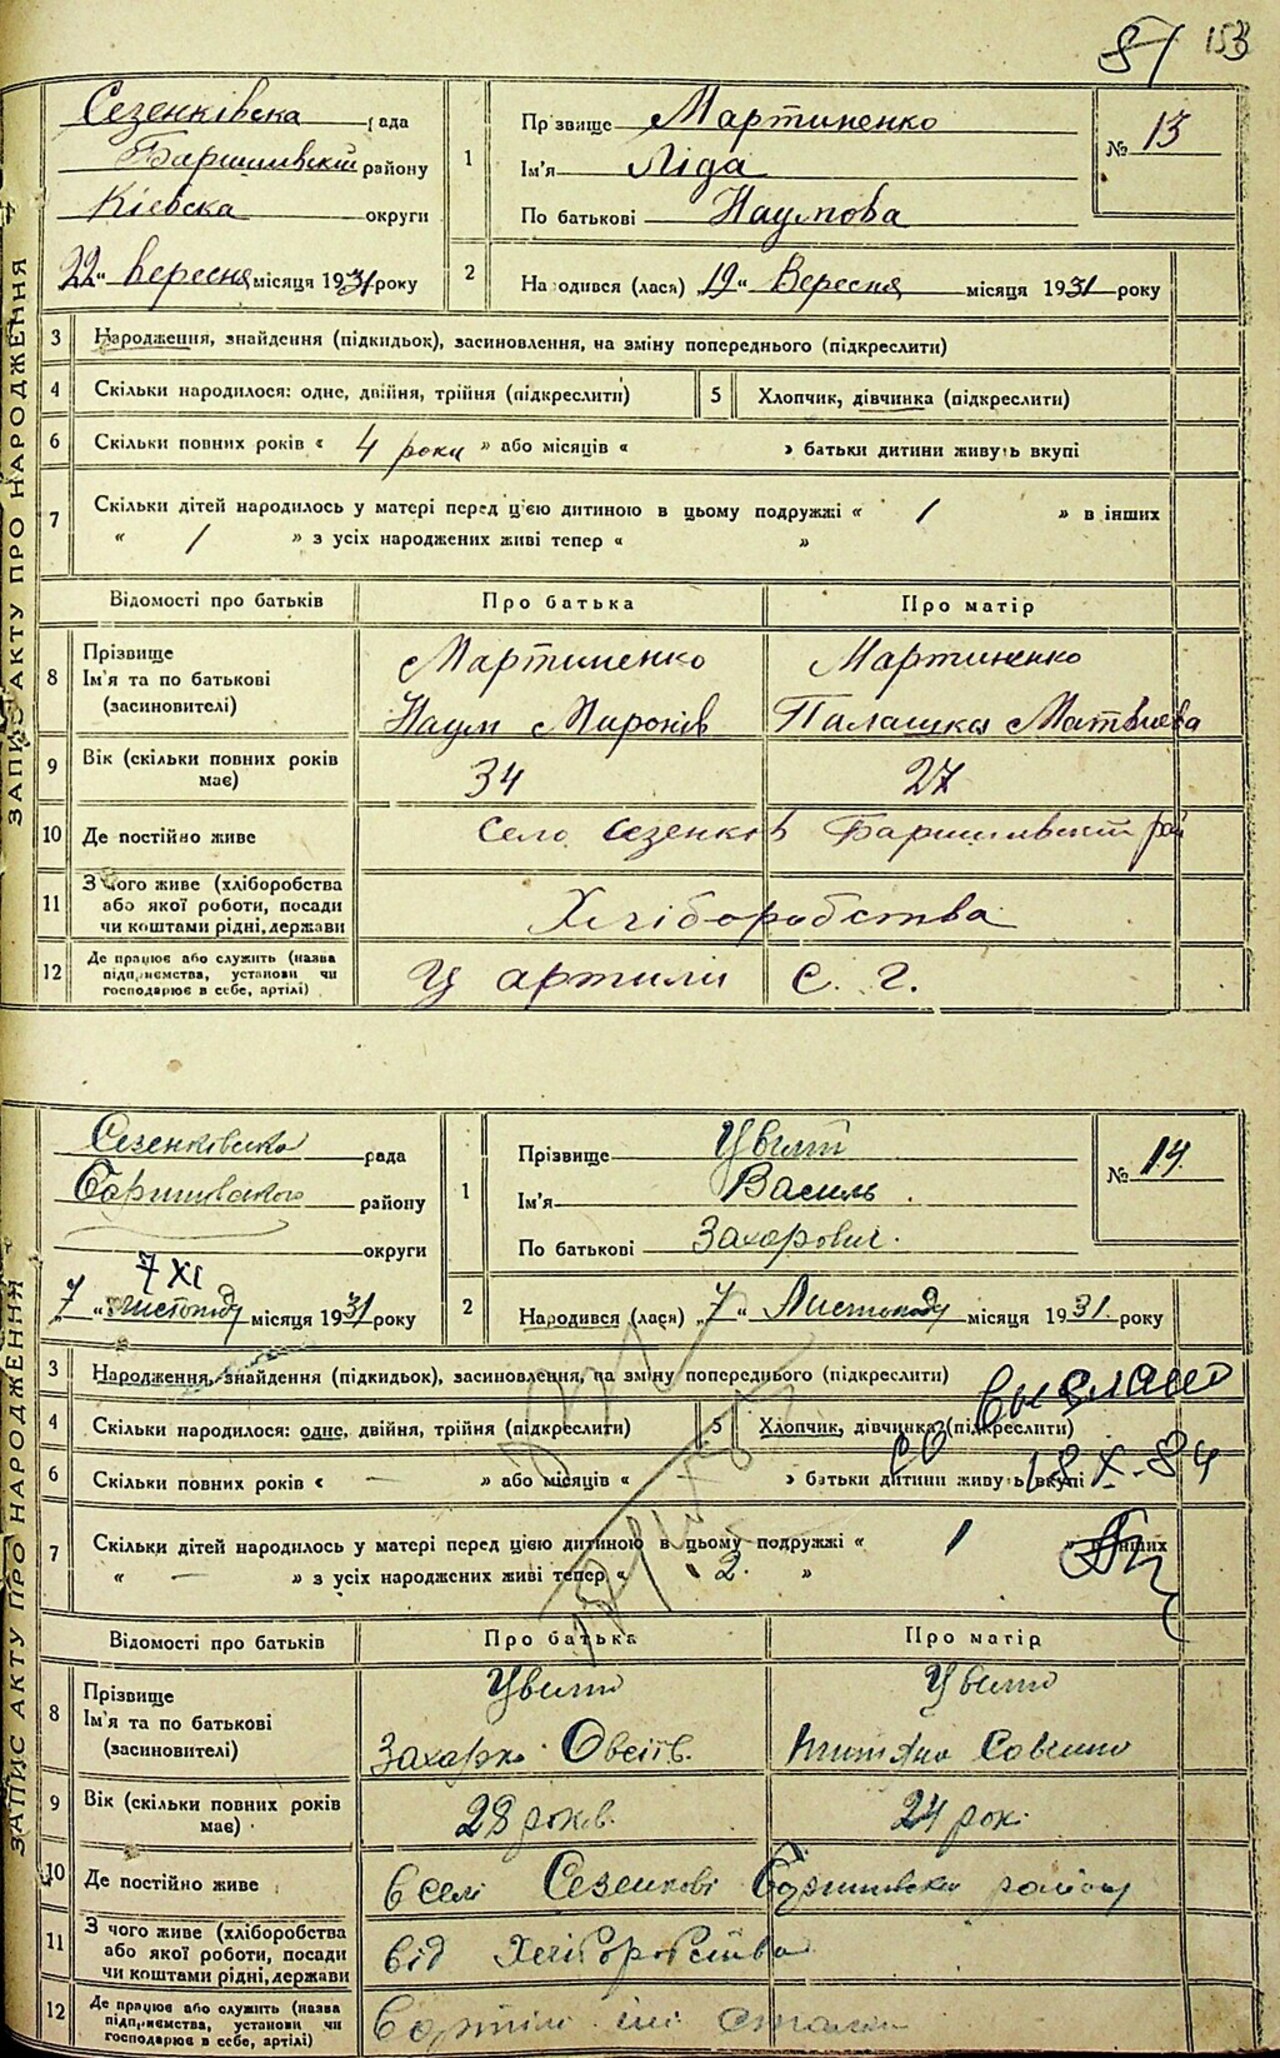 87 153
ЗАПИС АКТУ ПРО НАРОДЖЕННЯ
Сезенківська рада
Баришивський району
Кіевска округи
22 " вересня місяця 1931 року
1
Прізвище Мартиненко
Ім'я Ліда
По батькові Наумова
№ 13
2 Народився (лася) „19" Вересня місяця 1931 року
3 Народження, знайдення (підкидьок), засиновлення, на зміну попереднього (підкреслити)
4 Скільки народилося: одне, двійня, трійня (підкреслити)
5 Хлопчик, дівчинка (підкреслити)
6 Скільки повних років « 4 роки » або місяців « » батьки дитини живуть вкупі
7 Скільки дітей народилось у матері перед цією дитиною в цьому подружжі « 1 » в інших
« 1 » з усіх народжених живі тепер « »
Відомості про батьків Про батька Про матір
8 Прізвище
Ім'я та по батькові
(засиновителі)
Мартиненко Мартиненко
Наум Миронів Палашка Матвиева
9 Вік (скільки повних років має) 34 27
10 Де постійно живе село Сезенків Баришивський рай
11 З чого живе (хліборобства
або якої роботи, посади
чи коштами рідні, держави
Хліборобства
12 Де працює або служить (назва
підприємства, установи чи
господарює в себе, артілі)
У артили С. г.
ЗАПИС АКТУ ПРО НАРОДЖЕННЯ
Сезенківська рада
Баришивського району
округи
7 XI
„7 " Листопаду місяця 1931 року
1
Прізвище Цвилий
Ім'я Василь
По батькові Захарович.
№ 14.
2 Народився (лася) „7" Листопаду місяця 1931. року
3 Народження, знайдення (підкидьок), засиновлення, на зміну попереднього (підкреслити)
4 Скільки народилося: одне, двійня, трійня (підкреслити)
5 Хлопчик, дівчинка (підкреслити)
18 X-84
6 Скільки повних років « — » або місяців « » батьки дитини живуть вкупі
7 Скільки дітей народилось у матері перед цією дитиною в цьому подружжі « 1 » в інших
« — » з усіх народжених живі тепер « 2. »
Відомості про батьків Про батька Про матір
8 Прізвище
Ім'я та по батькові
(засиновителі)
Захарко Овсіів.
9 Вік (скільки повних років має) 28 років. 24 рок.
10 Де постійно живе в селі Сезенкові Баришивського району
11 З чого живе (хліборобства
або якої роботи, посади
чи коштами рідні, держави
від Хліборобства
12 Де працює або служить (назва
підприємства, установи чи
господарює в себе, артілі)
В артілі